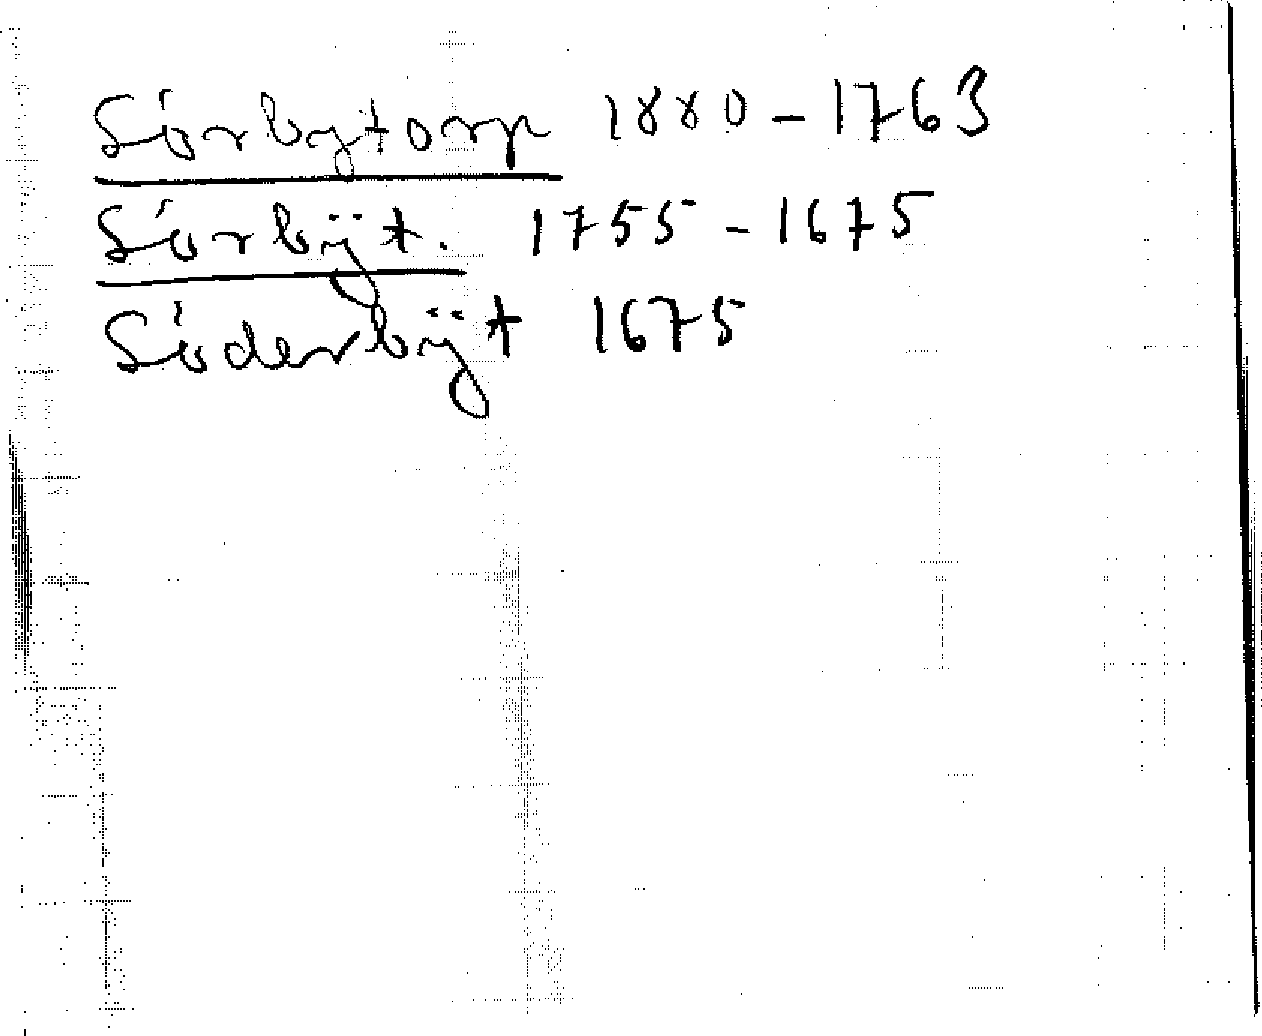 Sörbytorp 1880-1763
Sörbÿt. 1755-1675
Söderbÿt 1675